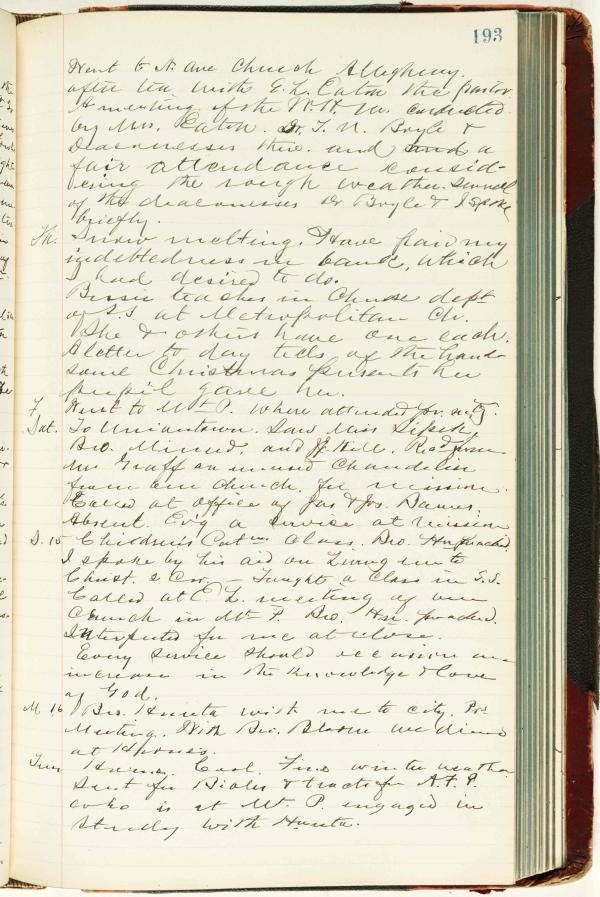 193
Went to N. Ave Church Allegheny.
after tea with E. L. Eaton the pastor
A meeting of the W. H. M. conducted
by Mrs. Eaton. Dr. T. N. Boyle &
Deaconesses there. and a
fair attendance consid-
ering the rough weather. Several
of the deaconesses Dr Boyle & I spoke
briefly.
Th. Snow melting. Have paid my
indebtedness in bank, which
I had desired to do.
Bessie teaches in Chinese dept
of S.S. at Metropolitan Ch.
She & others have one each.
A letter to day tells of the hand-
some Christmas presents her
pupil gave her.
F. Went to Mt P. where attended pr. m't'g.
Sat. To Uniontown. Saw Miss
Bro. Minerd, and Hill. Rec'd from
Mr Graff an unused chandelier
from our church, for mission.
Called at office of Jas & Jos. Barnes.
Absent. Ev'g a service at Mission
S. 15 Children's Cat class. Bro. preached
I spoke by his aid on Living unto
Christ. 2 Cor. - Taught a class in S.S.
Called at E. L. meeting of our
Church in Mt P. Bro. preached.
Interpreted for me at close.
Every service should occasion an
increase in the knowledge & love
of God.
M. 16 Bro. Hunta with me to city. Prs
Meeting. With Bro. we dined
at Horne's.
Tues Home. Cool. Fine winter weather
Sent for Bibles & tracts for A. F. P.
who is at Mt. P. engaged in
study with Hunta.